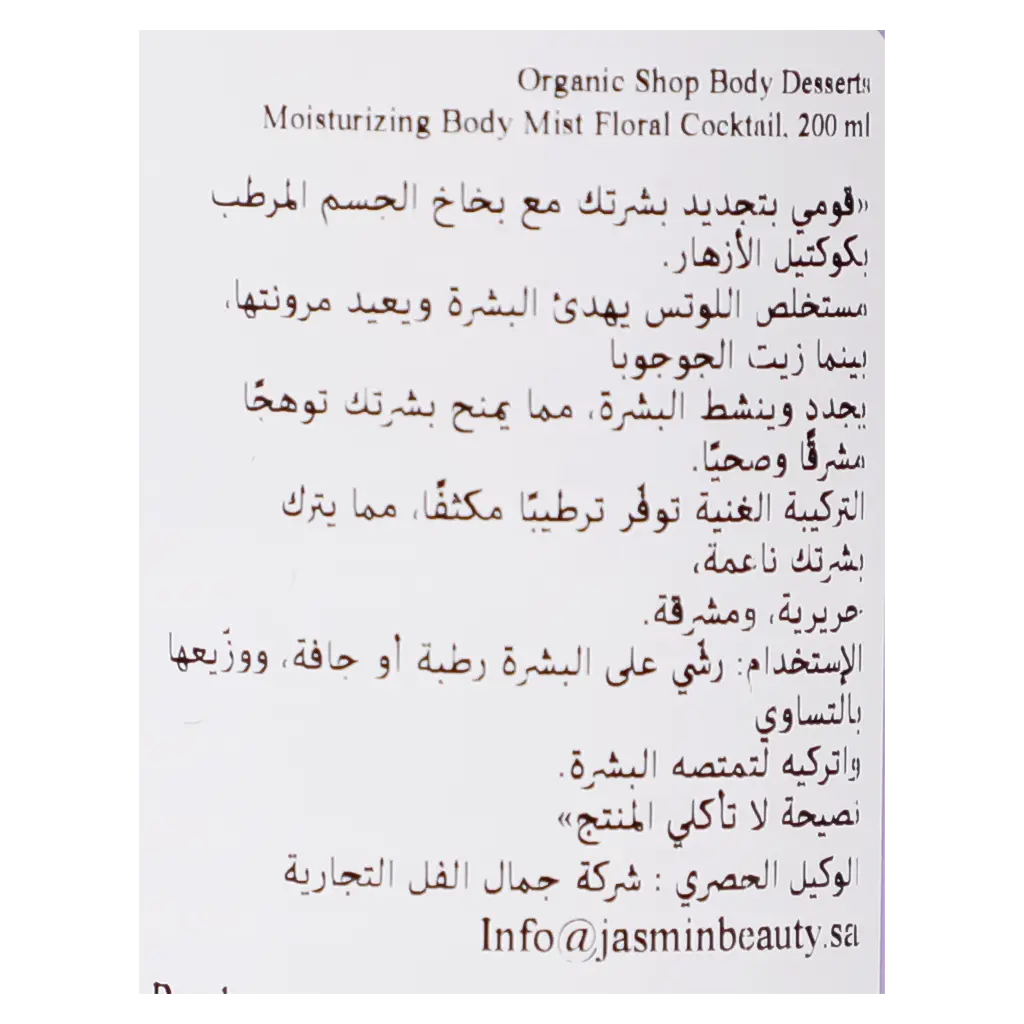 Organic Shop Body Desserts
Moisturizing Body Mist Floral Cocktail, 200 ml
«قومي بتجديد بشرتك مع بخاخ الجسم المرطب
بكوكتيل الأزهار.
مستخلص اللوتس يهدئ البشرة ويعيد مرونتها،
بينما زيت الجوجوبا
يجدد وينشط البشرة، مما يمنح بشرتك توهجًا
مشرقًا وصحيًا.
التركيبة الغنية توفّر ترطيبًا مكثفًا، مما يترك
بشرتك ناعمة،
حريرية، ومشرقة.
الإستخدام: رشّي على البشرة رطبة أو جافة، ووزّيعها
بالتساوي
واتركيه لتمتصه البشرة.
نصيحة لا تأكلي المنتج»
الوكيل الحصري : شركة جمال الفل التجارية
Info@jasminbeauty.sa